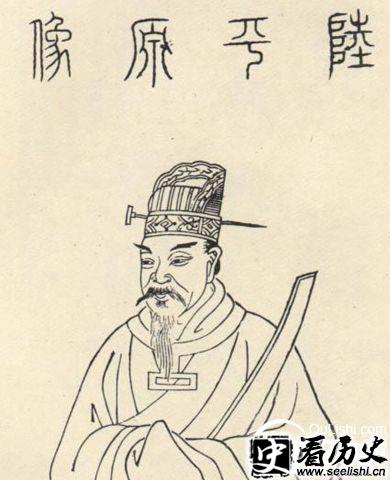 陸平原像
QuLishi.com
史看历史
www.seelishi.cn